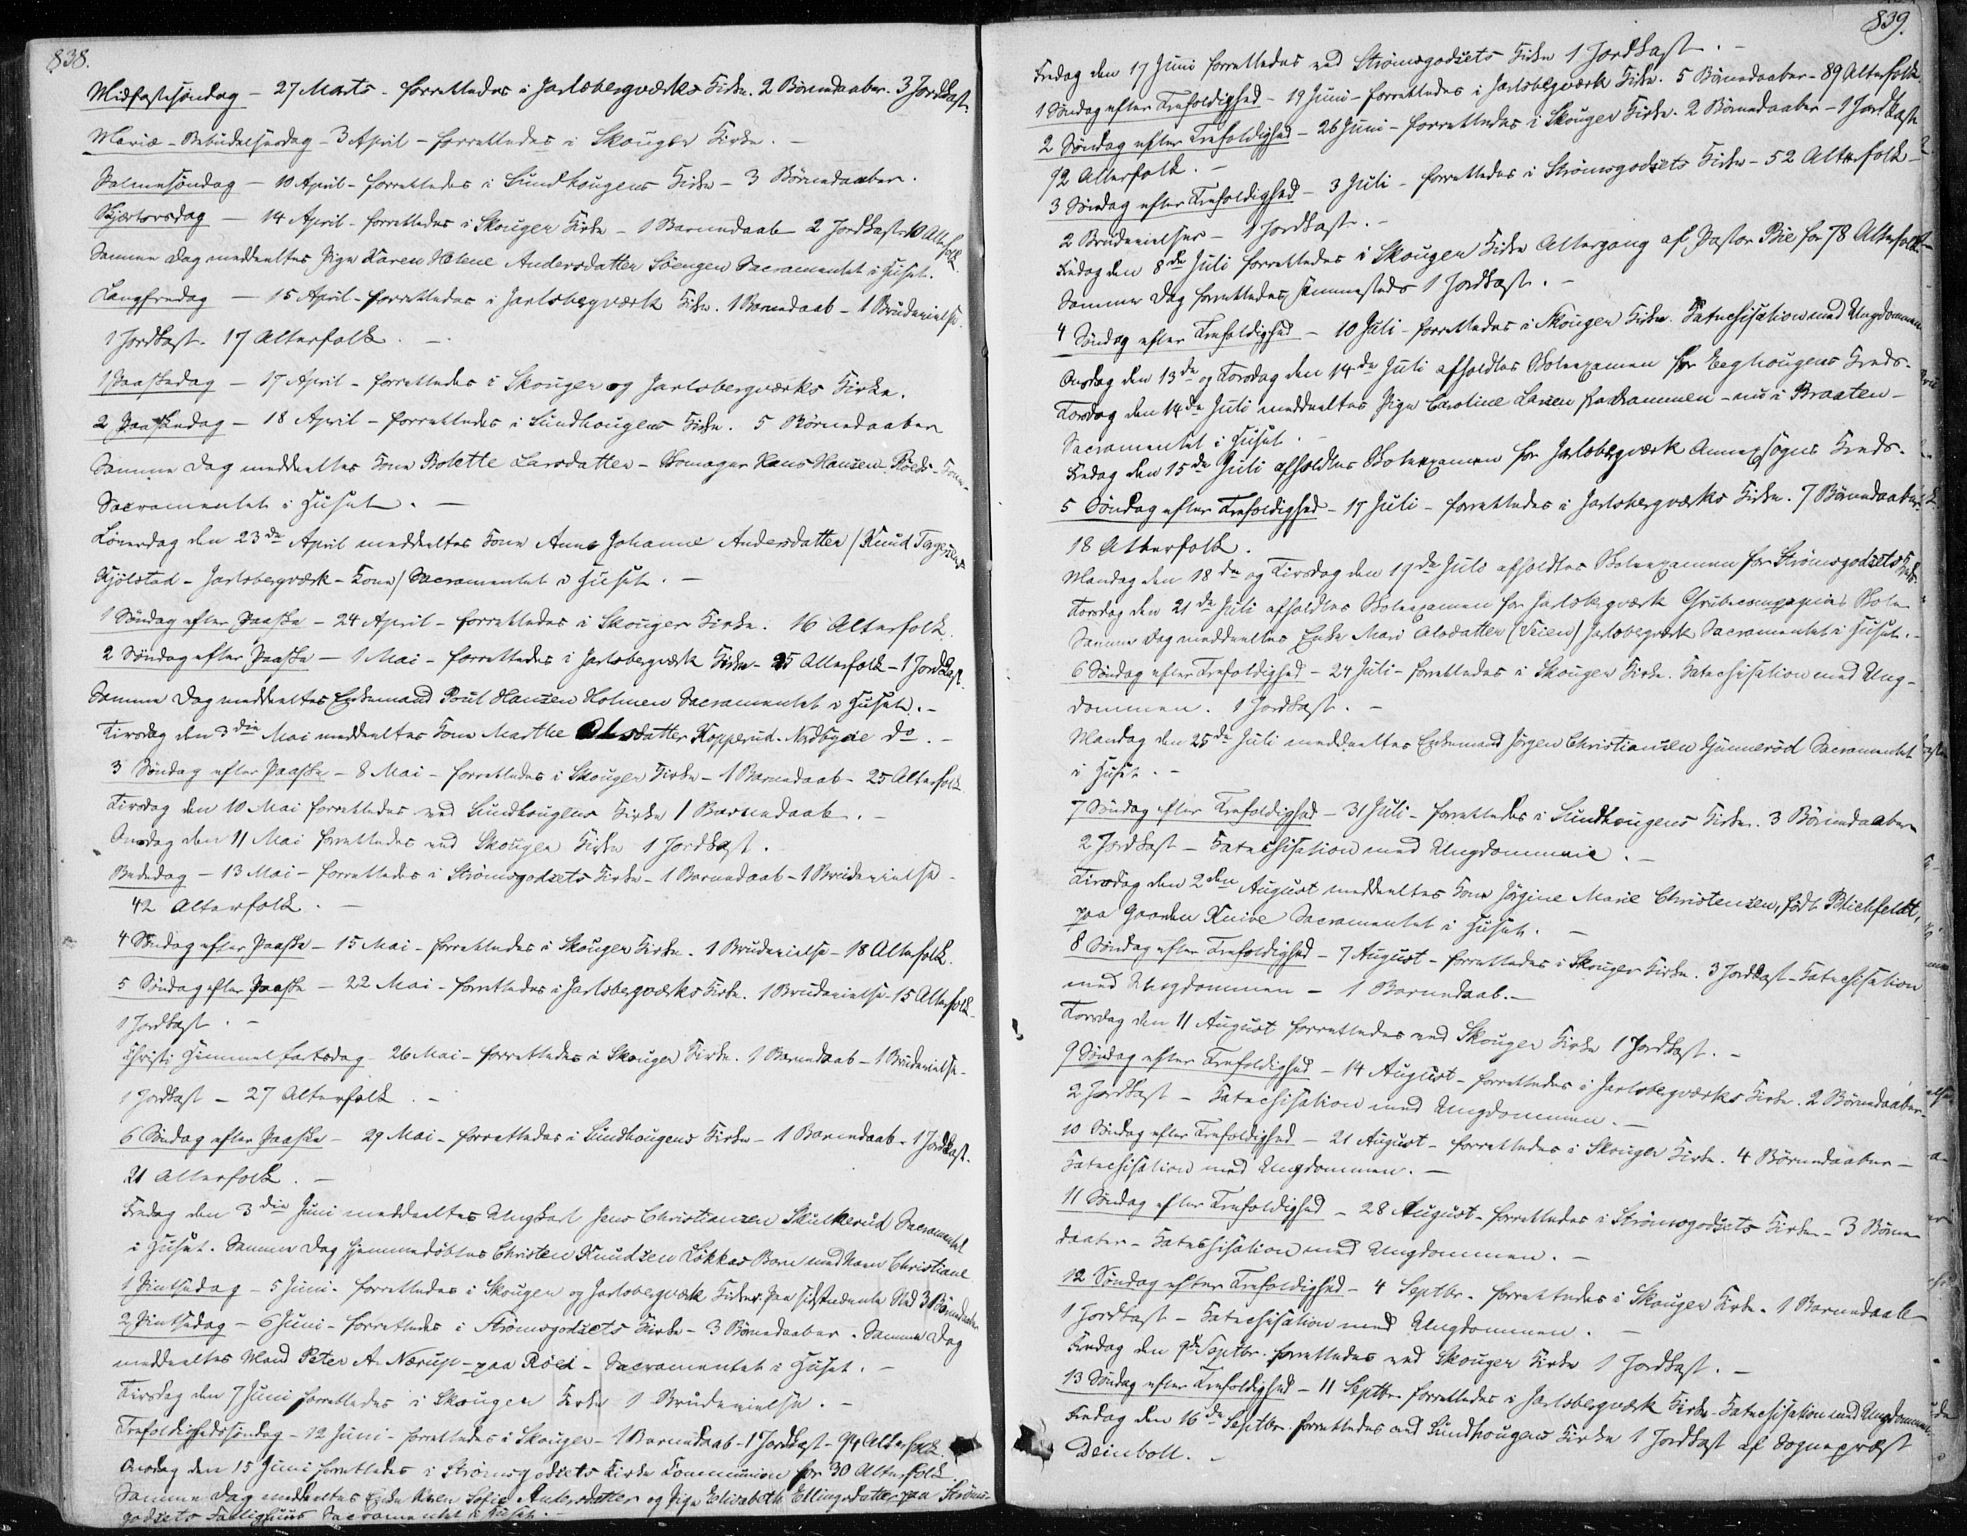 838.
Midfastesøndag - 27 Marts - forrettedes i Jarlsbergværks Kirke. 2 Børnedaaber. 3 Jordkast.
Mariæ-Bebudelsesdag - 3 April - forrettedes i Skouger Kirke. -
Palmesøndag - 10 April - forrettedes i Sundhougens Kirke - 3 Børnedaaber.
Skjærtorsdag - 14 April - forrettedes i Skouger Kirke - 1 Barnedaab 2 Jordkast. 10 Alterfolk.
Samme Dag meddeeltes Pige Karen Helene Andersdatter Søengen Sacramentet i Huset.
Langfredag - 15 April - forrettedes i Jarlsbergværk Kirke. 1 Barnedaab - 1 Brudevielse.
1 Jordkast. 17 Alterfolk. -
1 Paaskedag - 17 April - forrettedes i Skouger og Jarlsbergværks Kirke.
2 Paaskedag - 18 April - forrettedes i Sundhougens Kirke. 5 Børnedaaber
Samme Dag meddeeltes Kone Bolette Larsdatter - Skomager Hans Hansen Røeds - Kone -
Sacramentet i Huset. -
Løverdag den 23de April meddeeltes Kone Anne Johanne Andersdatter /Knud Tergersens
Kjølstad - Jarlsbergværk - Kone/ Sacramentet i Huset. -
1 Søndag efter Paaske - 24 April - forrettedes i Skouger Kirke. 16 Alterfolk.
2 Søndag efter Paaske - 1 Mai - forrettedes i Jarlsbergværk Kirke - 25 Alterfolk - 1 Jordkast.
Samme Dag meddeeltes Enkemand Poul Hansen Holmen Sacramentet i Huset. -
Tirsdag den 3die Mai meddeeltes Kone Marthe Olsdatter Kopperud-Nedbyde do. -
3 Søndag efter Paaske - 8 Mai - forrettedes i Skouger Kirke - 1 Barnedaab - 25 Alterfolk
Tirsdag den 10 Mai forrettedes ved Sundhougens Kirke 1 Barnedaab. -
Onsdag den 11 Mai forrettedes ved Skouger Kirke 1 Jordkast.
Bededag - 13 Mai - forrettedes i Strømsgodsets Kirke - 1 Barnedaab - 1 Brudevielse -
42 Alterfolk. -
4 Søndag efter Paaske - 15 Mai - forrettedes i Skouger Kirke. 1 Brudevielse - 18 Alterfolk.
5 Søndag efter Paaske - 22 Mai - forrettedes i Jarlsbergværks Kirke. 1 Brudevielse - 15 Alterfolk -
1 Jordkast. -
Christi Himmelfartsdag - 26 Mai - forrettedes i Skouger Kirke. 1 Barnedaab - 1 Brudevielse -
1 Jordkast - 27 Alterfolk. -
6 Søndag efter Paaske - 29 Mai - forrettedes i Sundhougens Kirke - 1 Barnedaab - 1 Jordkast.
21 Alterfolk. -
Fredag den 3die Juni meddeeltes Ungkarl Jens Christiansen Skulkerud Sacramentet
i Huset. Samme Dag hjemmedøbtes Christen Knudsen Løkkas Barn med Navn Christiane
1 Pintsedag - 5 Juni - forrettedes i Skouger og Jarlsbergværk Kirker. Paa sidstnævnte Sted 3 Børnedaaber
2 Pintsedag - 6 Juni - forrettedes i Strømsgodsets Kirke - 3 Børnedaaber. Samme Dag
meddeeltes Mand Peter A. Nærup - paa Røed - Sacramentet i Huset. -
Tirsdag den 7 Juni forrettedes i Skouger Kirke 1 Brudevielse. -
Trefoldighedssøndag - 12 Juni - forrettedes i Skouger - 1 Barnedaab - 1 Jordkast - 94 Alterfolk
Onsdag den 15 Juni forrettedes i Strømsgodsets Kirke Communion for 30 Alterfolk.
Samme Dag meddeeltes Enke Karen Sofie Andersdatter og Pige Elisabeth Ellingsdatter paa Strøms-
godsets Fattighuus Sacramentet i Huset. -
839.
Fredag den 17 Juni forrettedes ved Strømsgodsets Kirke 1 Jordkast. -
1 Søndag efter Trefoldighed - 19 Juni - forrettedes i Jarlsbergværk Kirke. 5 Børnedaaber - 89 Alterfolk.
2 Søndag efter Trefoldighed - 26 Juni - forrettedes i Skouger Kirke. 2 Børnedaaber - 1 Jordkast
72 Alterfolk. -
3 Søndag efter Trefoldighed - 3 Juli - forrettedes i Strømsgodsets Kirke - 52 Alterfolk -
2 Brudevielser - 1 Jordkast. -
Fredag den 8de Juli forrettedes i Skouger Kirke Altergang af Pastor Bie for 78 Alterfolk -
Samme Dag forrettedes sammesteds 1 Jordkast. -
4 Søndag efter Trefoldighed - 10 Juli - forrettedes i Skouger Kirke. Katechisation med Ungdommen
Onsdag den 13de og Torsdag den 14de Juli afholdtes Skoleexamen for Eeghougens Kreds.
Torsdag den 14de Juli meddeeltes Pige Caroline Larsen fra Drammen - nu i Braaten -
Sacramentet i Huset.
Fredag den 15de Juli afholdtes Skoleexamen for Jarlsbergværk Annexsogns Kreds.
5 Søndag efter Trefoldighed - 17 Juli - forrettedes i Jarlsbergværks Kirke. 7 Børnedaaber.
18 Alterfolk.
Mandag den 18de og Tirsdag den 19de Juli afholdtes Skoleexamen for Strømsgodsets Kreds.
Torsdag den 21de Juli afholdtes Skoleexamen for Jarlsbergværk Grubecompagnies Skole
Samme Dag meddeeltes Enke Mari Olsdatter (Veien) Jarlsbergværk Sacramentet i Huset. -
6 Søndag efter Trefoldighed - 24 Juli - forrettedes i Skouger Kirke. Katechisation med Ung-
dommen. 1 Jordkast. -
Mandag den 25de Juli meddeeltes Enkemand Jørgen Christiansen Gunnerød Sacramentet
i Huset. -
7 Søndag efter Trefoldighed - 31 Juli - forrettedes i Sundhougens Kirke. 3 Børnedaaber
2 Jordkast - Katechisation med Ungdommen. -
Tirsdag den 2den August meddeeltes Kone Jørgine Marie Christensen, født Blichfeldt,
paa Gaarden Knive Sacramentet i Huset. -
8 Søndag efter Trefoldighed - 7 August - forrettedes i Skouger Kirke. 3 Jordkast - Katechisation
med Ungdommen - 1 Barnedaab. -
Torsdag den 11 August forrettedes ved Skouger Kirke 1 Jordkast. -
9 Søndag efter Trefoldighed - 14 August - forrettedes i Jarlsbergværks Kirke. 2 Børnedaaber -
2 Jordkast - Katechisation med Ungdommen. -
10 Søndag efter Trefoldighed - 21 August - forrettedes i Skouger Kirke. 4 Børnedaaber -
Katechisation med Ungdommen. -
11 Søndag efter Trefoldighed - 28 August - forrettedes i Strømsgodsets Kirke - 3 Børne-
daaber - Katechisation med Ungdommen. -
12 Søndag efter Trefoldighed - 4 Septbr. - forrettedes i Skouger Kirke. 1 Barnedaab
1 Jordkast - Katechisation med Ungdommen. -
Fredag den 9de Septbr. forrettedes ved Skouger Kirke 1 Jordkast. -
13 Søndag efter Trefoldighed - 11 Septbr. forrettedes i Jarlsbergværk Kirke - Katechisation med Ungdommen
Fredag den 16de Septbr. forrettedes ved Sundhougens Kirke 1 Jordkast af Sognepræst
Deinboll. -